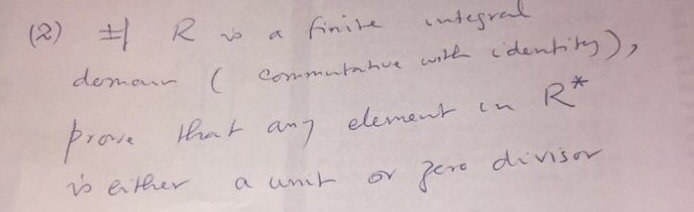 (2) If R is a finite integral
domain ( commutative with identity),
prove that any element in R*
is either a unit or zero divisor